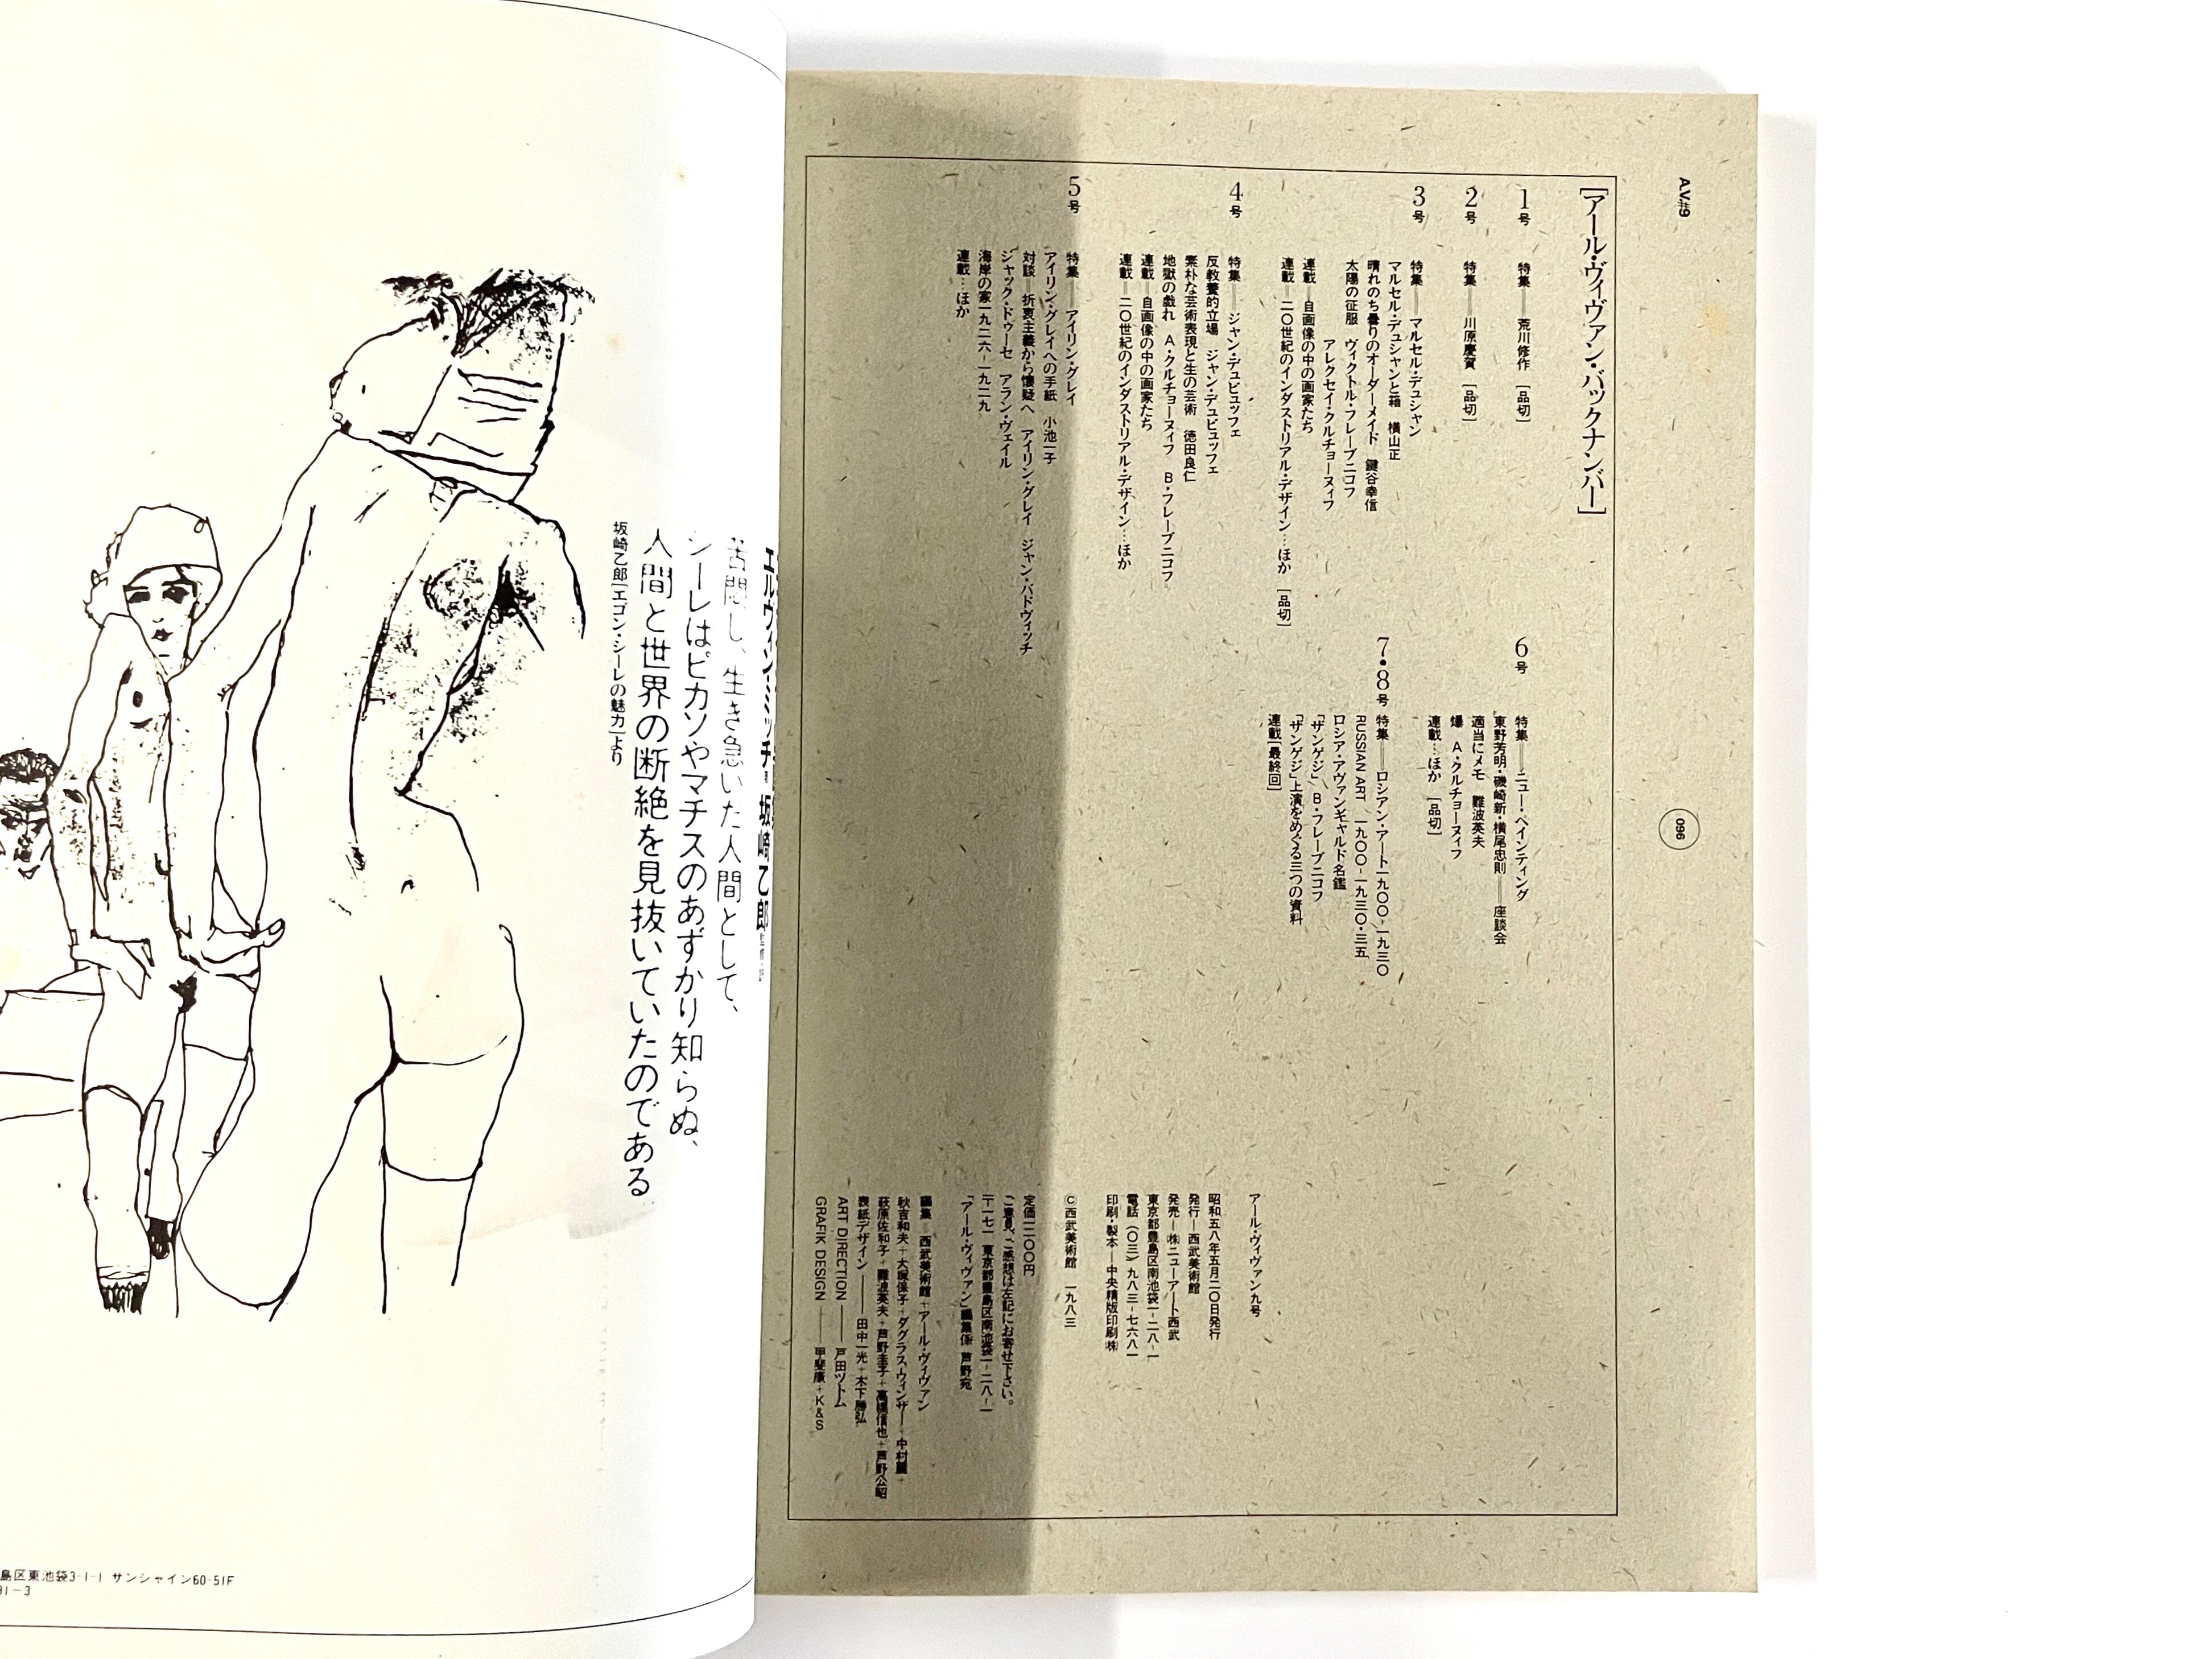 A.V.#9
096
[アール・ヴィヴァン・バックナンバー]
1号
特集——荒川修作 [品切]
2号
特集——川原慶賀 [品切]
3号
特集——マルセル・デュシャン
マルセル・デュシャンと箱 横山正
晴れのち曇りのオーダーメイド 鍵谷幸信
太陽の征服 ヴィクトル・フレーブニコフ
アレクセイ・クルチョーヌィフ
連載—自画像の中の画家たち
連載—二〇世紀のインダストリアル・デザイン…ほか [品切]
4号
特集——ジャン・デュビュッフェ
反教養的立場 ジャン・デュビュッフェ
素朴な芸術表現と生の芸術 徳田良仁
地獄の戯れ A・クルチョーヌィフ B・フレーブニコフ
連載—自画像の中の画家たち
連載—二〇世紀のインダストリアル・デザイン…ほか
5号
特集——アイリン・グレイ
アイリン・グレイへの手紙 小池一子
対談—折衷主義から懐疑へ アイリン・グレイ ジャン・バドヴィッチ
ジャック・ドゥーセ アラン・ヴェイル
海岸の家一九二六-一九二九
連載…ほか
6号
特集——ニュー・ペインティング
東野芳明・磯崎新・横尾忠則——座談会
適当にメモ 難波英夫
爆 A・クルチョーヌィフ
連載…ほか [品切]
7・8号
特集——ロシアン・アート一九〇〇-一九三〇
RUSSIAN ART 一九〇〇-一九三〇・三五
ロシア・アヴァンギャルド名鑑
「ザンゲジ」 B・フレーブニコフ
「ザンゲジ」上演をめぐる三つの資料
連載[最終回]
アール・ヴィヴァン九号
昭和五八年五月二〇日発行
発行—西武美術館
発売—㈱ニューアート西武
東京都豊島区南池袋一-二八-一
電話(〇三)九八三-七六八一
印刷・製本—中央精版印刷㈱
©西武美術館 一九八三
定価一二〇〇円
ご意見、ご感想は左記にお寄せ下さい。
〒一七一 東京都豊島区南池袋一-二八-一
「アール・ヴィヴァン」編集係 芦野宛
編集—西武美術館+アール・ヴィヴァン
秋吉和夫+大塚保子+ダグラス・ウィンザー+中村麗+
萩原佐和子+難波英夫+芦野圭子+高橋信也+芦野公昭
表紙デザイン——田中一光+木下勝弘
ART DIRECTION——戸田ツトム
GRAFIK DESIGN——甲斐康+K&S
エルヴィン・ミッチ 坂崎乙郎
苦悶し、生き急いだ人間として、
シーレはピカソやマチスのあずかり知らぬ、
人間と世界の断絶を見抜いていたのである
坂崎乙郎[エゴン・シーレの魅力]より
島区東池袋3-1-1 サンシャイン60-51F
91-3